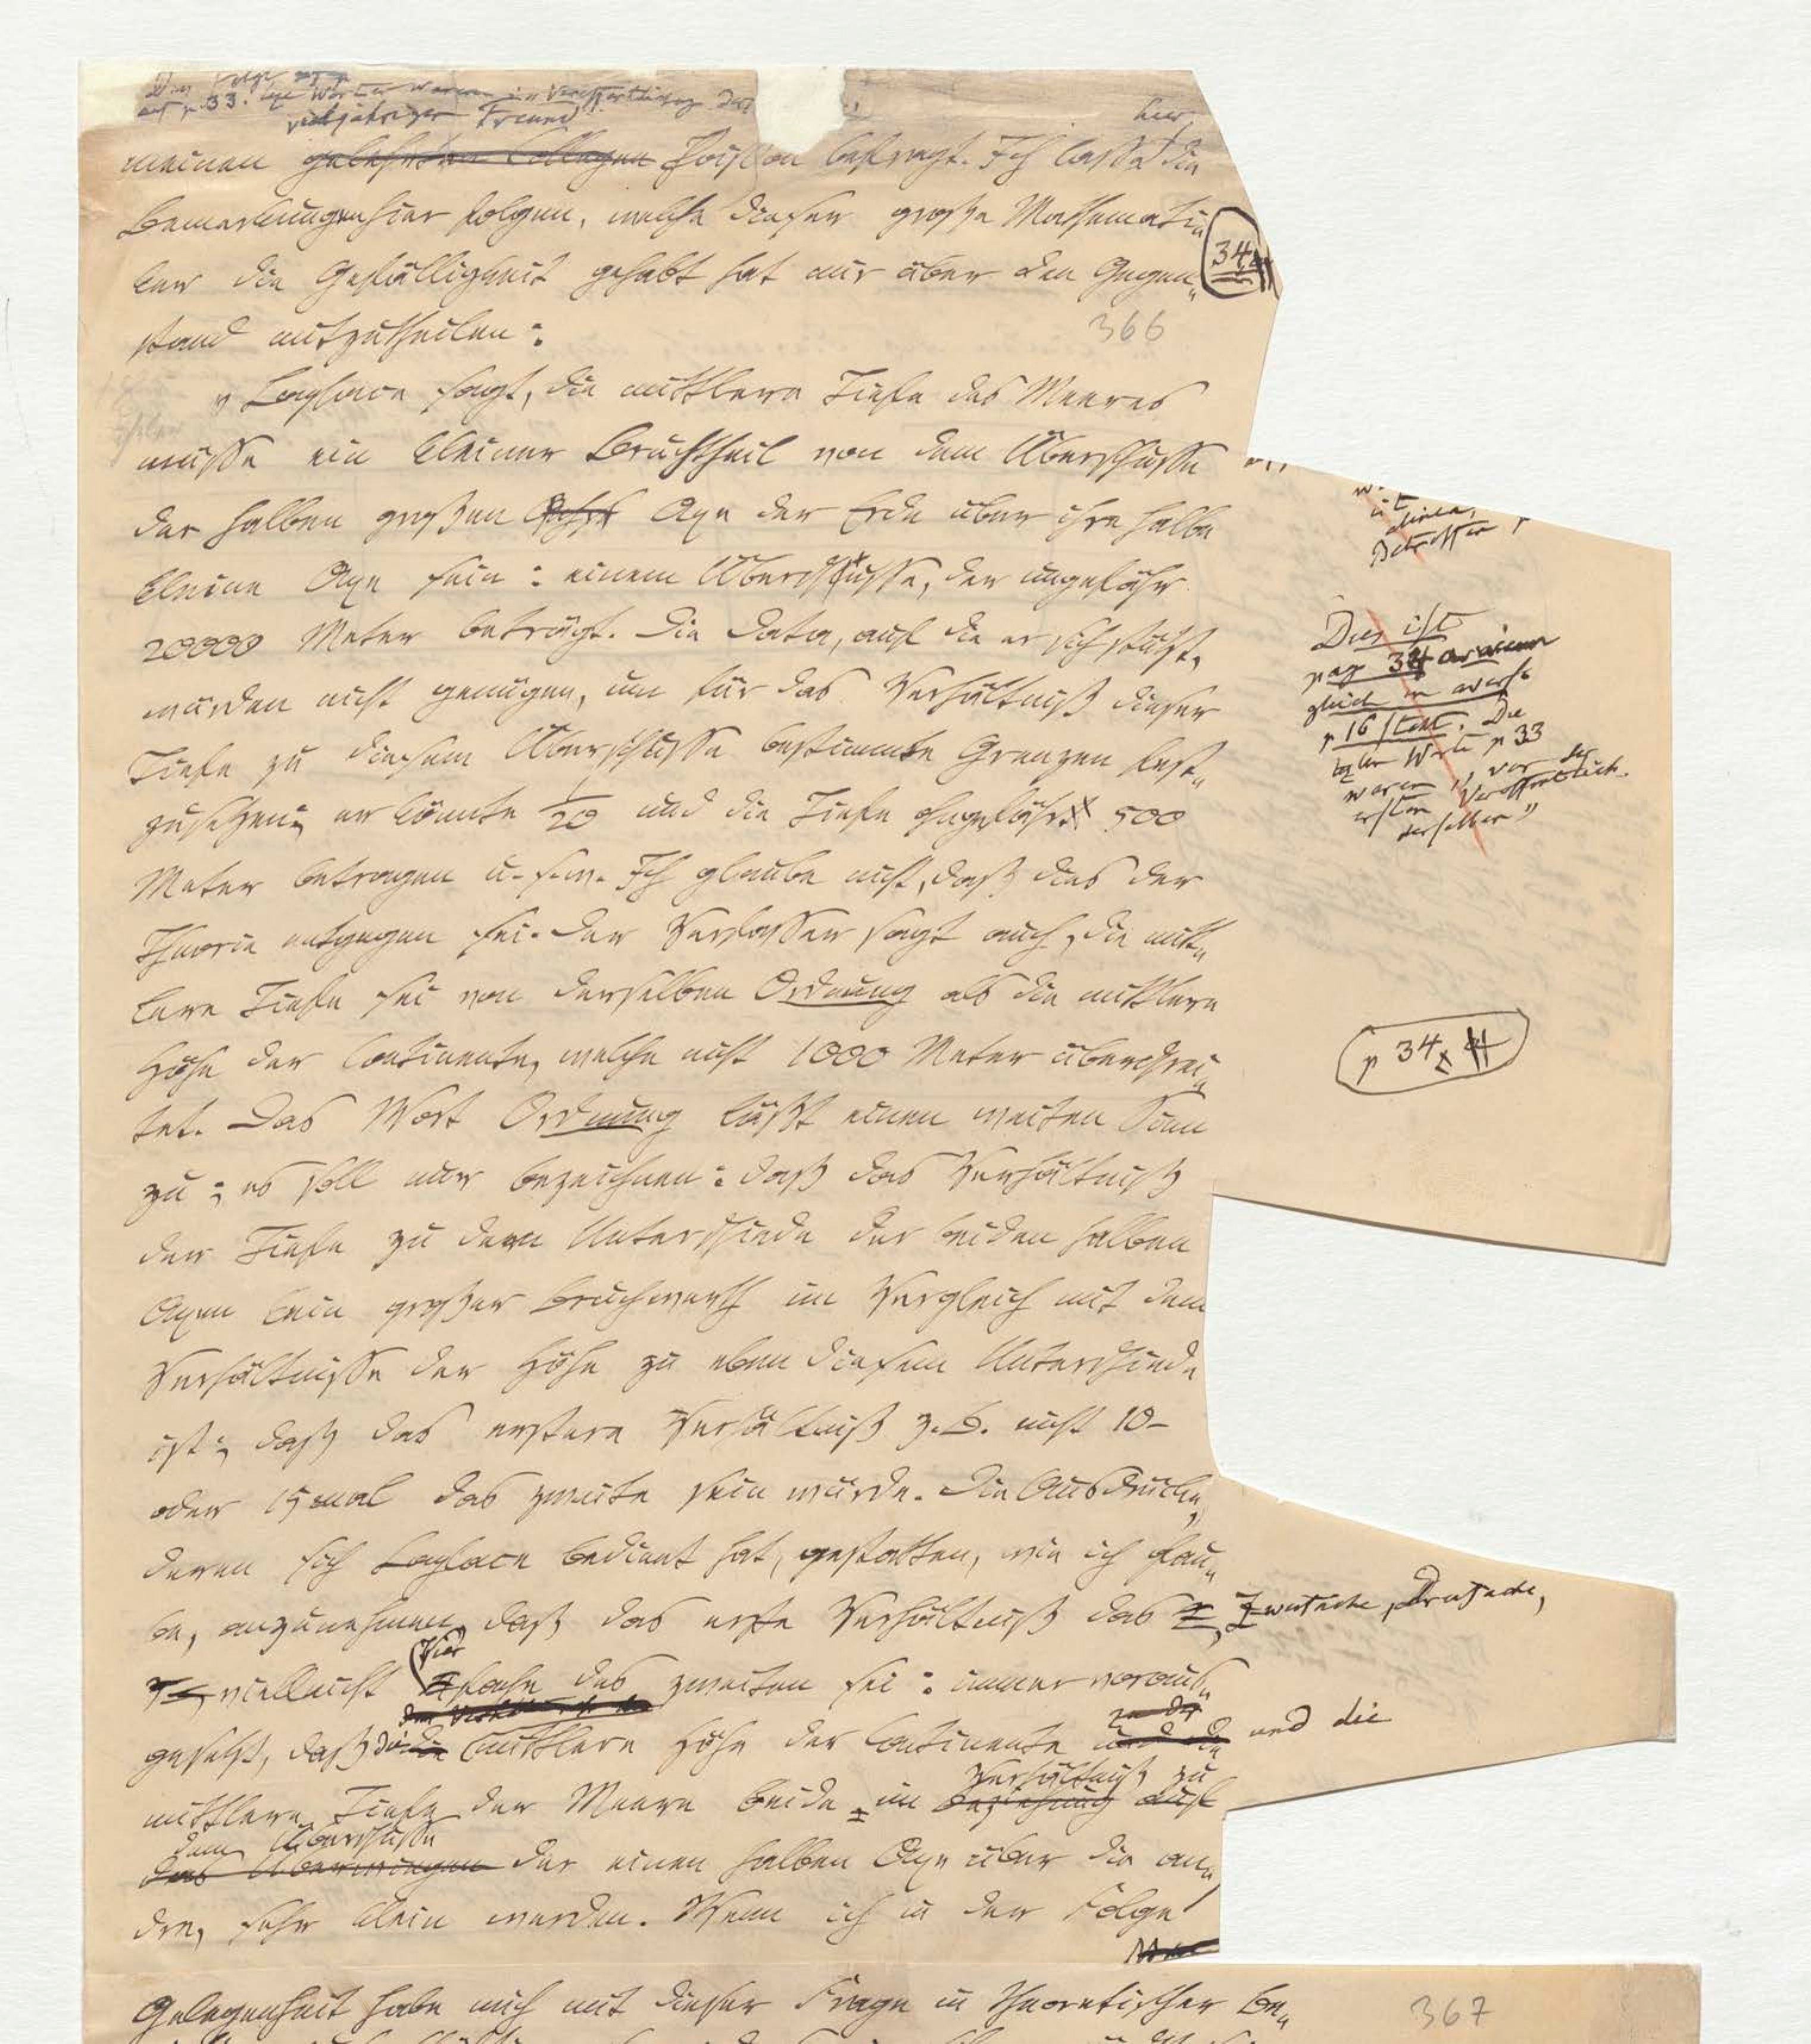 auf p. 33. Wörter waren
vieljähriger Freund
hier
meinen gelehrten Collegen Poisson befragt. Ich lasse die
Bemerkungen hier folgen, welche dieser große Mathemati„
ker die Gefälligkeit gehabt hat mir über den Gegen„
stand mitzutheilen:
34
366
„Laplace sagt, die mittlere Tiefe des Meeres
müsse ein kleiner Bruchtheil von dem Überschusse
der halben großen Axe der Erde über ihre halbe
kleine Axe sein: einem Überschusse, der ungefähr
20000 Meter beträgt. Die Data, auf die er sich stützt,
würden nicht genügen, um für das Verhältniß dieser
Tiefe zu diesem Überschusse bestimmte Grenzen fest„
zusetzen; er könnte 1/20 und die Tiefe ohngefähr 500
Meter betragen u. s. w. Ich glaube nicht, daß dies der
Theorie entgegen sei. Der Verfasser sagt auch, die mitt„
lere Tiefe sei von derselben Ordnung als die mittlere
Höhe der Continente, welche nicht 1000 Meter überschrei„
tet. Das Wort Ordnung läßt einen weiten Sinn
zu; es soll nur bezeichnen: daß das Verhältniß
der Tiefe zu dem Unterschiede der beiden halben
Axen kein großer Bruchwerth im Vergleich mit dem
Verhältnisse der Höhe zu eben diesem Unterschiede
ist; daß das erstere Verhältniß z. B. nicht 10-
oder 15mal das zweite sein würde. Die Ausdrücke,
deren sich Laplace bedient hat, gestatten, wie ich glau„
be, anzunehmen, daß das erste Verhältniß das 2, Zweifache, Dreifache,
vielleicht Vierfache des zweiten sei: immer voraus„
gesetzt, daß die mittlere Höhe der Continente und die
mittlere Tiefe der Meere beide, im Beziehung auf
Verhältniß zu
dem Überschusse
das der einen halben Axe über die an„
dre, sehr klein werden. Wenn ich in der Folge
Dies ist
pag 34
gleich
p 16 steht. Die
lezten Worte p 33
waren „vor der
ersten Veröffentlich.
derselben"
p 34
Gelegenheit habe mich mit dieser Frage in theoretischer Be„
367